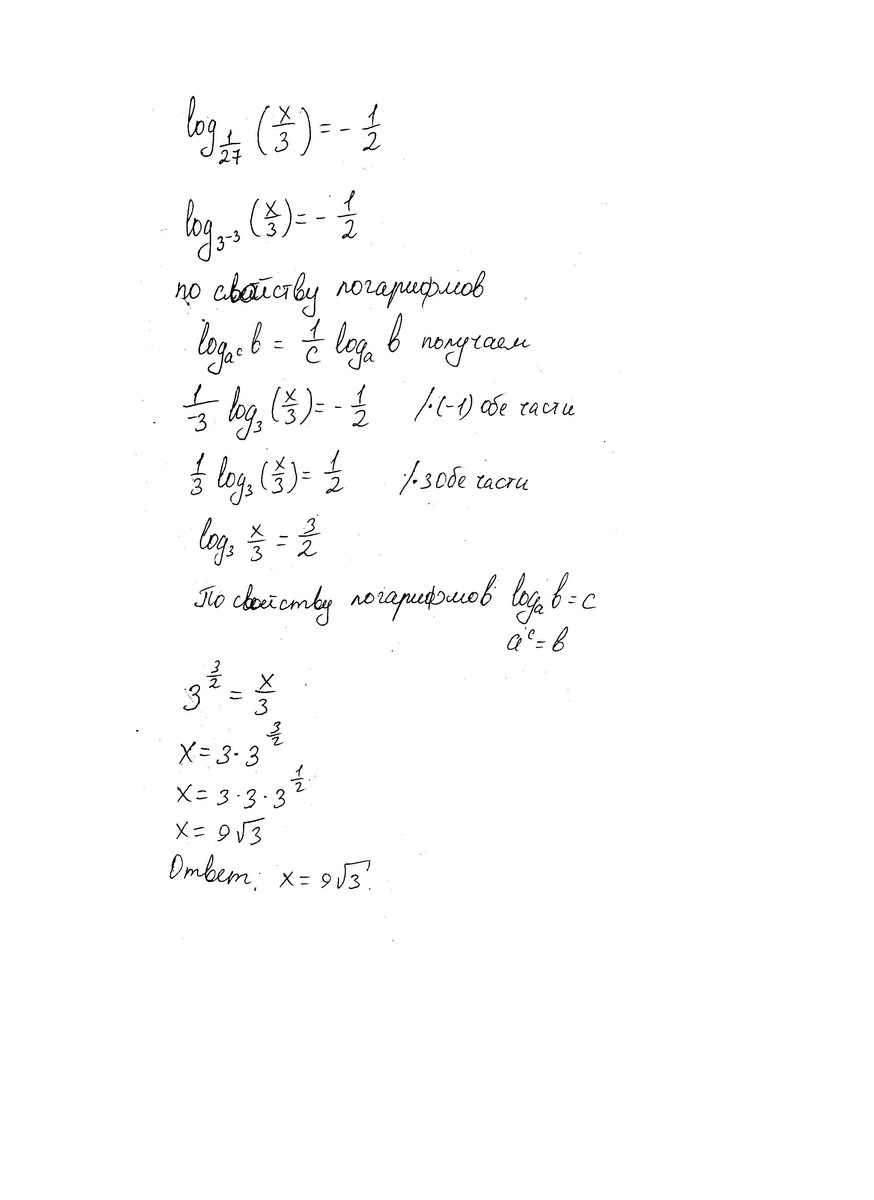 log_{1/27} (x/3) = - 1/2
log_{3^{-3}} (x/3) = - 1/2
по свойству логарифмов
log_{a^c} b = 1/c log_a b получаем
1/-3 log_3 (x/3) = - 1/2 /·(-1) обе части
1/3 log_3 (x/3) = 1/2 /·3 обе части
log_3 x/3 = 3/2
По свойству логарифмов log_a b = c
a^c = b
3^{3/2} = x/3
x = 3 · 3^{3/2}
x = 3 · 3 · 3^{1/2}
x = 9√3
Ответ: x = 9√3.